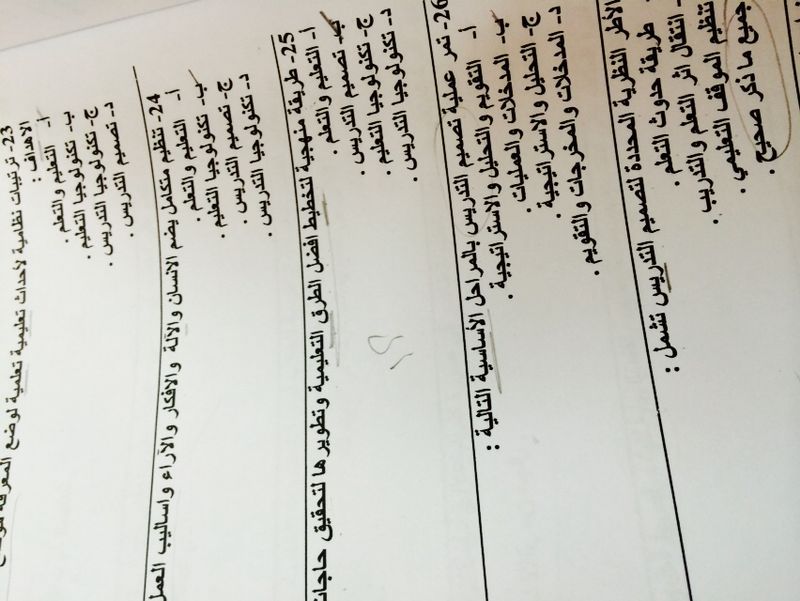 23- ترتيبات نظامية لأحداث تعليمية تعلمية لوضع المعرفة موضع
الاهداف :
أ- التعليم والتعلم .
ب- تكنولوجيا التعليم .
ج- تكنولوجيا التدريس .
د- تصميم التدريس .
24- تنظيم متكامل يضم الانسان والآلة والافكار والآراء واساليب العمل
أ- التعليم والتعلم .
ب- تكنولوجيا التعليم .
ج- تصميم التدريس .
د- تكنولوجيا التدريس .
25- طريقة منهجية لتخطيط افضل الطرق التعليمية وتطويرها لتحقيق حاجات
أ- التعليم والتعلم .
ب- تصميم التدريس .
ج- تكنولوجيا التعليم .
د- تكنولوجيا التدريس .
26- تمر عملية تصميم التدريس بالمراحل الأساسية التالية :
أ- التقويم والتحليل والاستراتيجية .
ب- المدخلات والعمليات .
ج- التحليل والاستراتيجية .
د- المدخلات والمخرجات والتقويم .
الأطر النظرية المحددة لتصميم التدريس تشمل :
طريقة حدوث التعلم .
انتقال اثر التعلم والتدريب .
تنظيم الموقف التعليمي .
جميع ما ذكر صحيح .